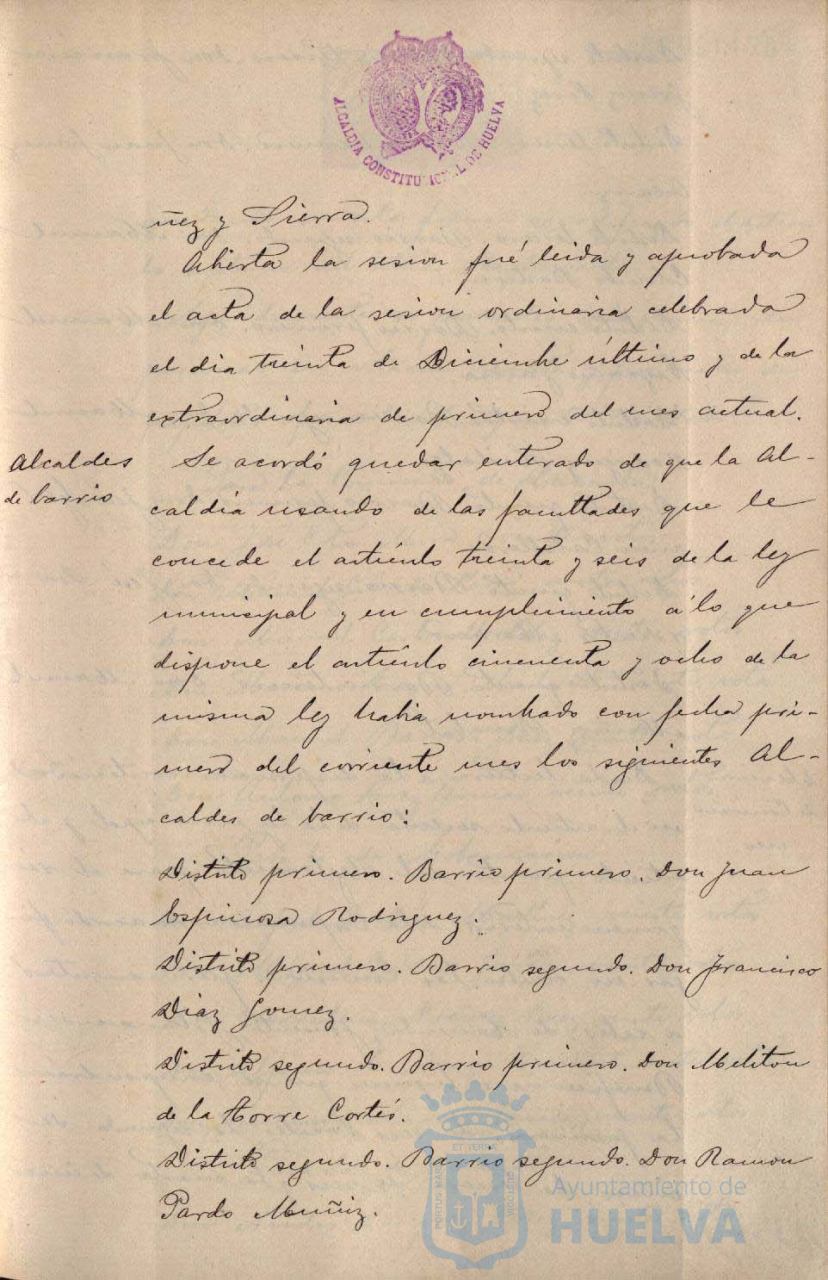 ALCALDIA CONSTITUCIONAL DE HUELVA
ñez y Sierra.
Abierta la sesion fué leida y aprobada
el acta de la sesion ordinaria celebrada
el dia treinta de Diciembre último y de la
extraordinaria de primero del mes actual.
Alcaldes
de barrio
Se acordó quedar enterado de que la Al-
caldía usando de las facultades que le
concede el artículo treinta y seis de la ley
municipal y en cumplimiento á lo que
dispone el artículo cincuenta y ocho de la
misma ley habia nombrado con fecha pri-
mero del corriente mes los siguientes Al-
caldes de barrio:
Distrito primero. Barrio primero. Don Juan
Espinosa Rodriguez.
Distrito primero. Barrio segundo. Don Francisco
Diaz Gomez.
Distrito segundo. Barrio primero. Don Meliton
de la Torre Cortés.
Distrito segundo. Barrio segundo. Don Ramon
Pardo Muñiz.
Ayuntamiento de
HUELVA